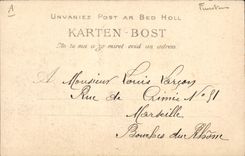 A
UNVANIEZ POST AR BED HOLL
KARTEN-BOST
An tu ma a zo miret evid an adres.
A Monsieur Louis
Rue de Crimée N° 51
Marseille
Bouches du Rhône